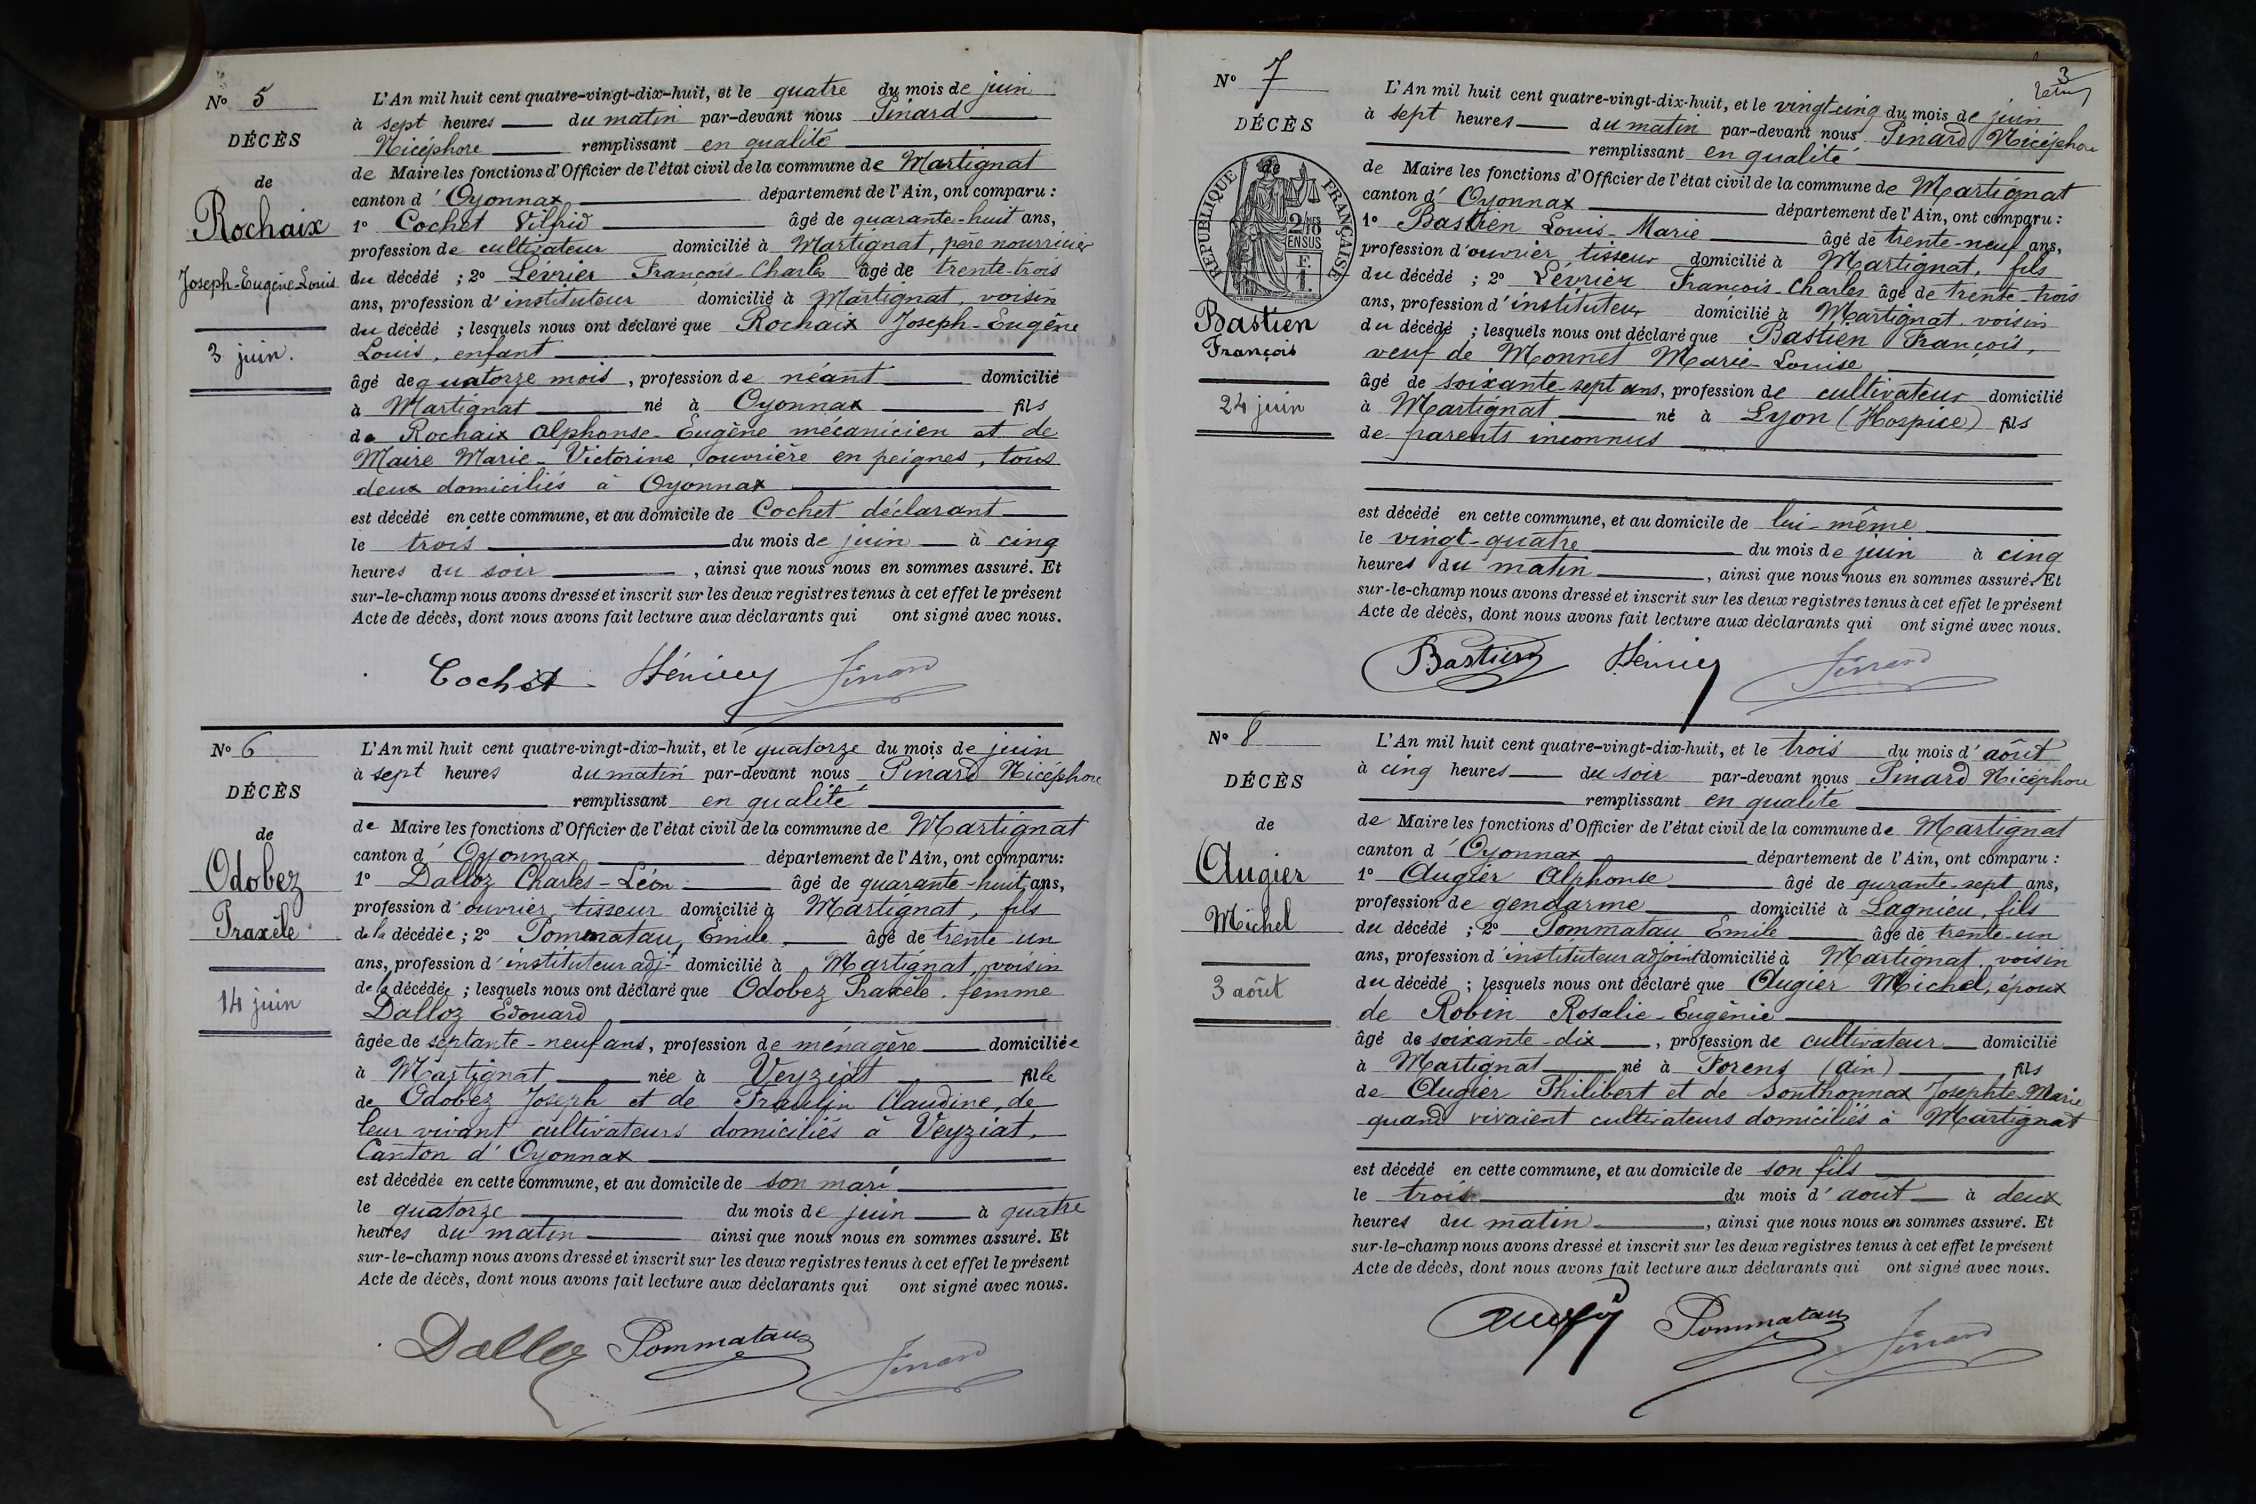 N° 5
DÉCÈS
de
Rochaix
Joseph-Eugène-Louis
3 juin.
L'An mil huit cent quatre-vingt-dix-huit, et le quatre du mois de juin
à sept heures du matin par-devant nous Pinard
Nicéphore remplissant en qualité
de Maire les fonctions d'Officier de l'état civil de la commune de Martignat
canton d'Oyonnax département de l'Ain, ont comparu :
1° Cochet Vilfrid âgé de quarante-huit ans,
profession de cultivateur domicilié à Martignat, père nourricier
du décédé ; 2° Levrier François-Charles âgé de trente-trois
ans, profession d'instituteur domicilié à Martignat, voisin
du décédé ; lesquels nous ont déclaré que Rochaix Joseph-Eugène
Louis, enfant
âgé de quatorze mois, profession de néant domicilié
à Martignat né à Oyonnax fils
de Rochaix Alphonse-Eugène mécanicien et de
Maire Marie-Victorine, ouvrière en peignes, tous
deux domiciliés à Oyonnax
est décédé en cette commune, et au domicile de Cochet déclarant
le trois du mois de juin à cinq
heures du soir, ainsi que nous nous en sommes assuré. Et
sur-le-champ nous avons dressé et inscrit sur les deux registres tenus à cet effet le présent
Acte de décès, dont nous avons fait lecture aux déclarants qui ont signé avec nous.
Cochet Pinard
N° 6
DÉCÈS
de
Odobez
Praxèle
14 juin
L'An mil huit cent quatre-vingt-dix-huit, et le quatorze du mois de juin
à sept heures du matin par-devant nous Pinard Nicéphore
remplissant en qualité
de Maire les fonctions d'Officier de l'état civil de la commune de Martignat
canton d'Oyonnax département de l'Ain, ont comparu:
1° Dalloz Charles-Léon âgé de quarante-huit ans,
profession d'ouvrier tisseur domicilié à Martignat, fils
de la décédée; 2° Pommatau, Emile âgé de trente un
ans, profession d'instituteur adjt domicilié à Martignat, voisin
de la décédée ; lesquels nous ont déclaré que Odobez Praxèle. femme
Dalloz Edouard
âgée de septante-neuf ans, profession de ménagère domiciliée
à Martignat née à Veyziat fille
de Odobez Joseph et de Claudine, de
leur vivant cultivateurs domiciliés à Veyziat,
Canton d'Oyonnax
est décédée en cette commune, et au domicile de son mari
le quatorze du mois de juin à quatre
heures du matin ainsi que nous nous en sommes assuré. Et
sur-le-champ nous avons dressé et inscrit sur les deux registres tenus à cet effet le présent
Acte de décès, dont nous avons fait lecture aux déclarants qui ont signé avec nous.
Dalloz Pommatau Pinard
3
N° 7
DÉCÈS
de
RÉPUBLIQUE FRANÇAISE
2/10 EN SUS
Bastien
François
24 juin
L'An mil huit cent quatre-vingt-dix-huit, et le vingt-cinq du mois de juin
à sept heures du matin par-devant nous Pinard Nicéphore
remplissant en qualité
de Maire les fonctions d'Officier de l'état civil de la commune de Martignat
canton d'Oyonnax département de l'Ain, ont comparu :
1° Bastien Louis-Marie âgé de trente-neuf ans,
profession d'ouvrier tisseur domicilié à Martignat, fils
du décédé ; 2° Levrier François-Charles âgé de trente-trois
ans, profession d'instituteur domicilié à Martignat, voisin
du décédé ; lesquels nous ont déclaré que Bastien François,
veuf de Monnet Marie-Louise
âgé de soixante-sept ans, profession de cultivateur domicilié
à Martignat né à Lyon (Hospice) fils
de parents inconnus
est décédé en cette commune, et au domicile de lui-même
le vingt-quatre du mois de juin à cinq
heures du matin, ainsi que nous nous en sommes assuré. Et
sur-le-champ nous avons dressé et inscrit sur les deux registres tenus à cet effet le présent
Acte de décès, dont nous avons fait lecture aux déclarants qui ont signé avec nous.
Bastien Pinard
N° 8
DÉCÈS
de
Augier
Michel
3 août
L'An mil huit cent quatre-vingt-dix-huit, et le trois du mois d'août
à cinq heures du soir par-devant nous Pinard Nicéphore
remplissant en qualité
de Maire les fonctions d'Officier de l'état civil de la commune de Martignat
canton d'Oyonnax département de l'Ain, ont comparu :
1° Augier Alphonse âgé de qurante-sept ans,
profession de gendarme domicilié à Lagnieu, fils
du décédé ; 2° Pommatau Emile âgé de trente-un
ans, profession d'instituteur adjoint domicilié à Martignat, voisin
du décédé ; lesquels nous ont déclaré que Augier Michel, époux
de Robin Rosalie-Eugénie
âgé de soixante-dix, profession de cultivateur domicilié
à Martignat né à Forens (Ain) fils
de Augier Philibert et de Sonthonnax Josephte Marie
quand vivaient cultivateurs domiciliés à Martignat
est décédé en cette commune, et au domicile de son fils
le trois du mois d'août à deux
heures du matin, ainsi que nous nous en sommes assuré. Et
sur-le-champ nous avons dressé et inscrit sur les deux registres tenus à cet effet le présent
Acte de décès, dont nous avons fait lecture aux déclarants qui ont signé avec nous.
Pommatau Pinard